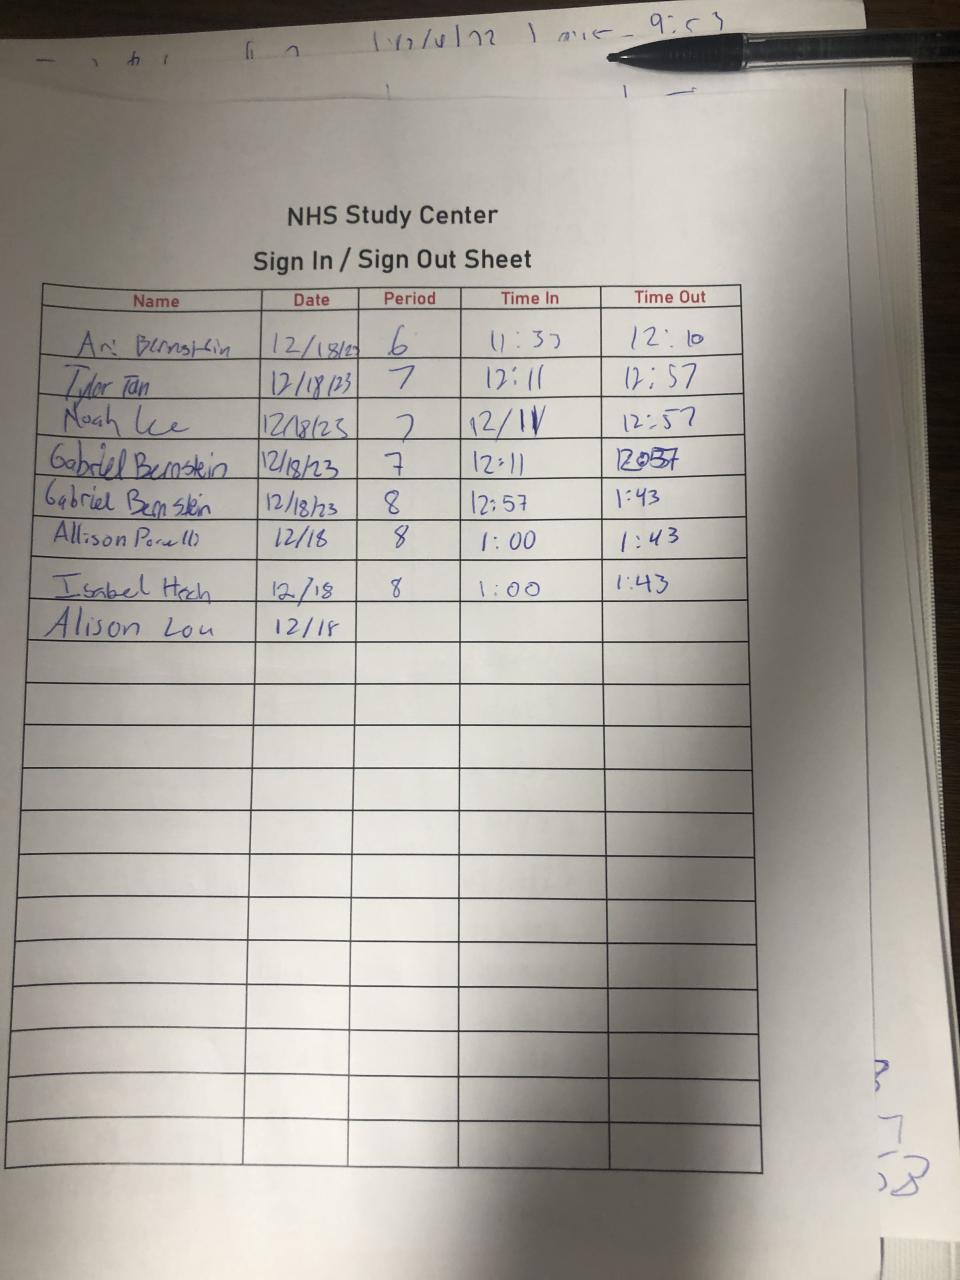 9:53
NHS Study Center
Sign In / Sign Out Sheet
Name Date Period Time In Time Out
Ari Bernstein 12/18/23 6 11:33 12:10
Tyler Tan 12/18/23 7 12:11 12:57
Noah Lee 12/18/23 7 12/11 12:57
Gabriel Bernstein 12/18/23 7 12:11
Gabriel Bernstein 12/18/23 8 12:57 1:43
Allison 12/18 8 1:00 1:43
Isabel 12/18 8 1:00 1:43
Alison Lou 12/18